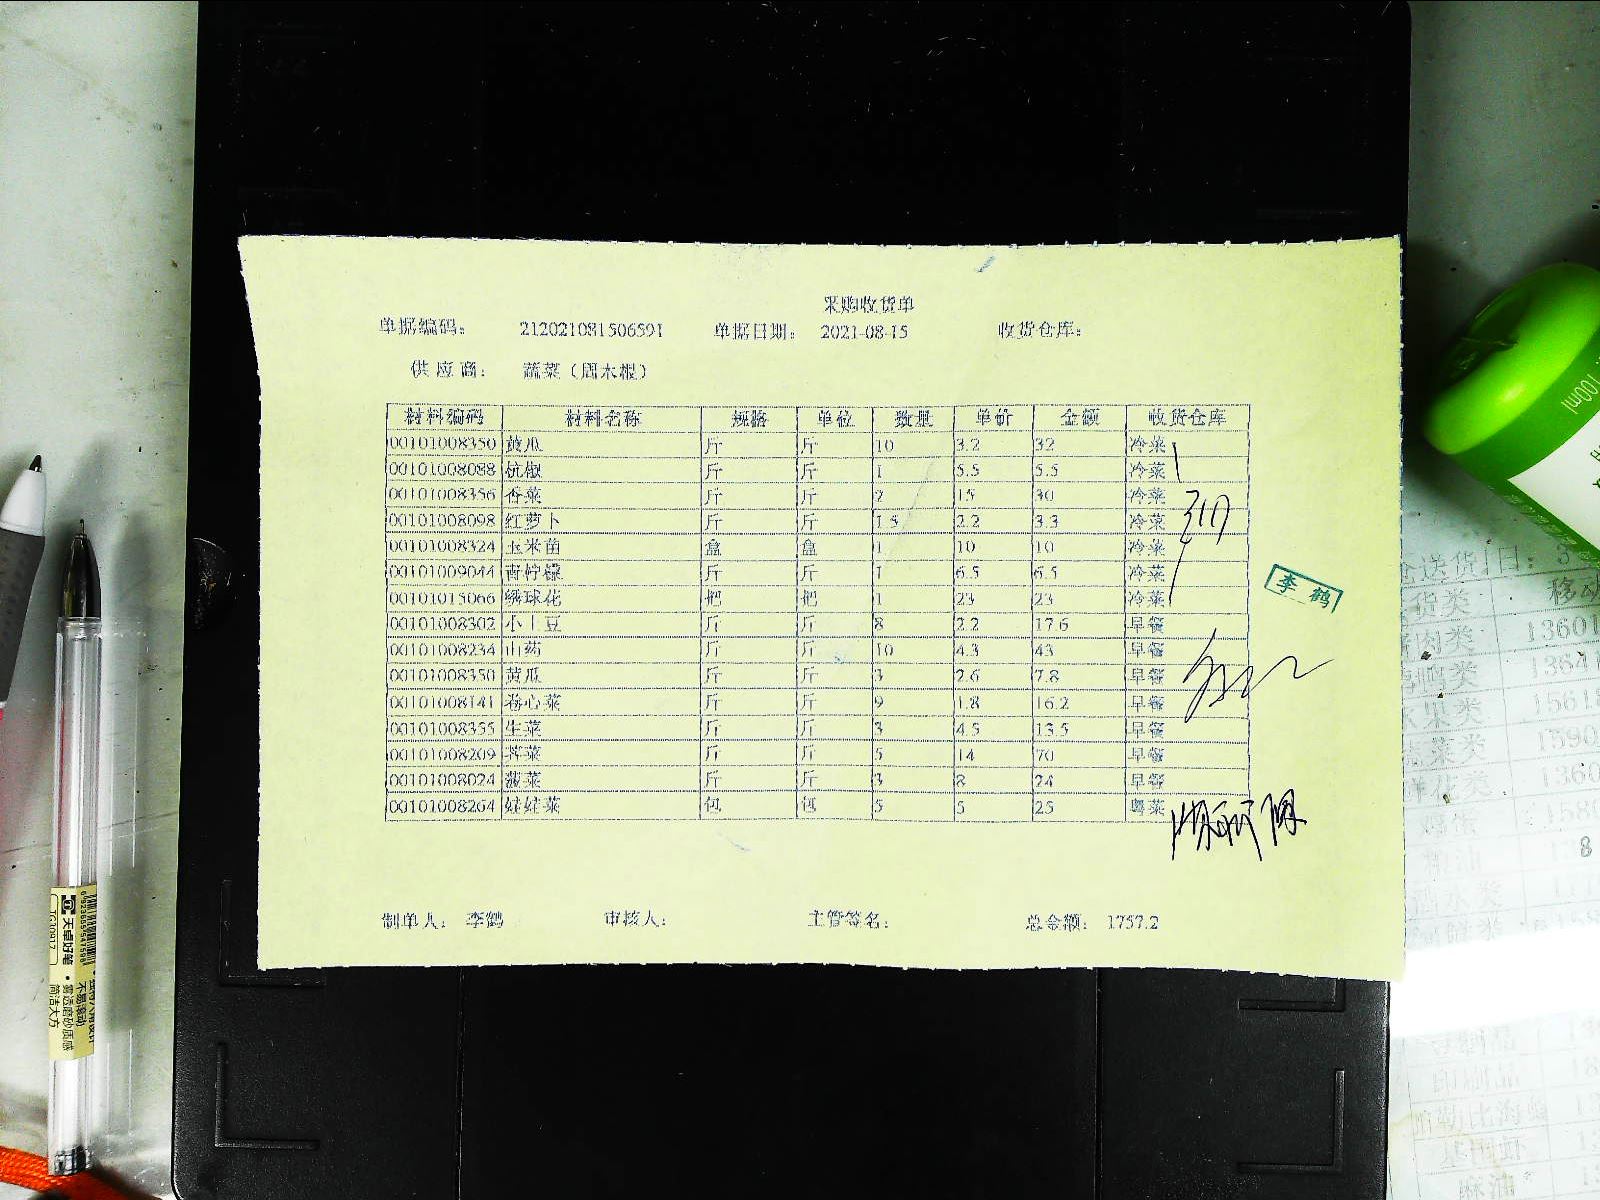 采购收货单
单据编码： 212021081506591 单据日期： 2021-08-15 收货仓库：
供应商： 蔬菜（周木根）
材料编码 材料名称 规格 单位 数量 单价 金额 收货仓库
00101008350 黄瓜 斤 斤 10 3.2 32 冷菜
00101008088 杭椒 斤 斤 1 5.5 5.5 冷菜
00101008356 香菜 斤 斤 2 15 30 冷菜
00101008098 红萝卜 斤 斤 1.5 2.2 3.3 冷菜
00101008324 玉米苗 盒 盒 1 10 10 冷菜
00101009044 青柠檬 斤 斤 1 6.5 6.5 冷菜
00101015066 绣球花 把 把 1 23 23 冷菜
00101008302 小土豆 斤 斤 8 2.2 17.6 早餐
00101008234 山药 斤 斤 10 4.3 43 早餐
00101008350 黄瓜 斤 斤 3 2.6 7.8 早餐
00101008141 卷心菜 斤 斤 9 1.8 16.2 早餐
00101008355 生菜 斤 斤 3 4.5 13.5 早餐
00101008209 荠菜 斤 斤 5 14 70 早餐
00101008024 菠菜 斤 斤 3 8 24 早餐
00101008264 娃娃菜 包 包 5 5 25 粤菜
李鹤
制单人： 李鹤 审核人： 主管签名： 总金额： 1757.2
天卓好笔·雾透磨砂质感
简洁大方
TG00917
100ml
送货日：3
货类 移动
肉类 1360
果类 1561
菜类 1590
印刷品 18
麻油